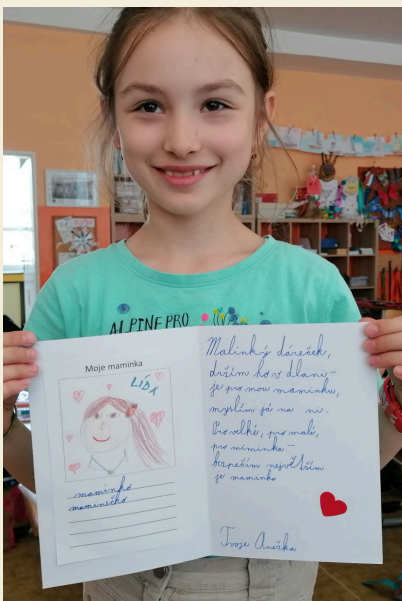 ALPINE PRO
Moje maminka
LÍDA
maminko
maminečko
Malinký dáreček,
držím ho v dlani -
je pro mou maminku,
myslím já na ni.
Pro velké, pro malé,
pro miminka -
bezpečím největším
je maminka
Tvoje Anežka